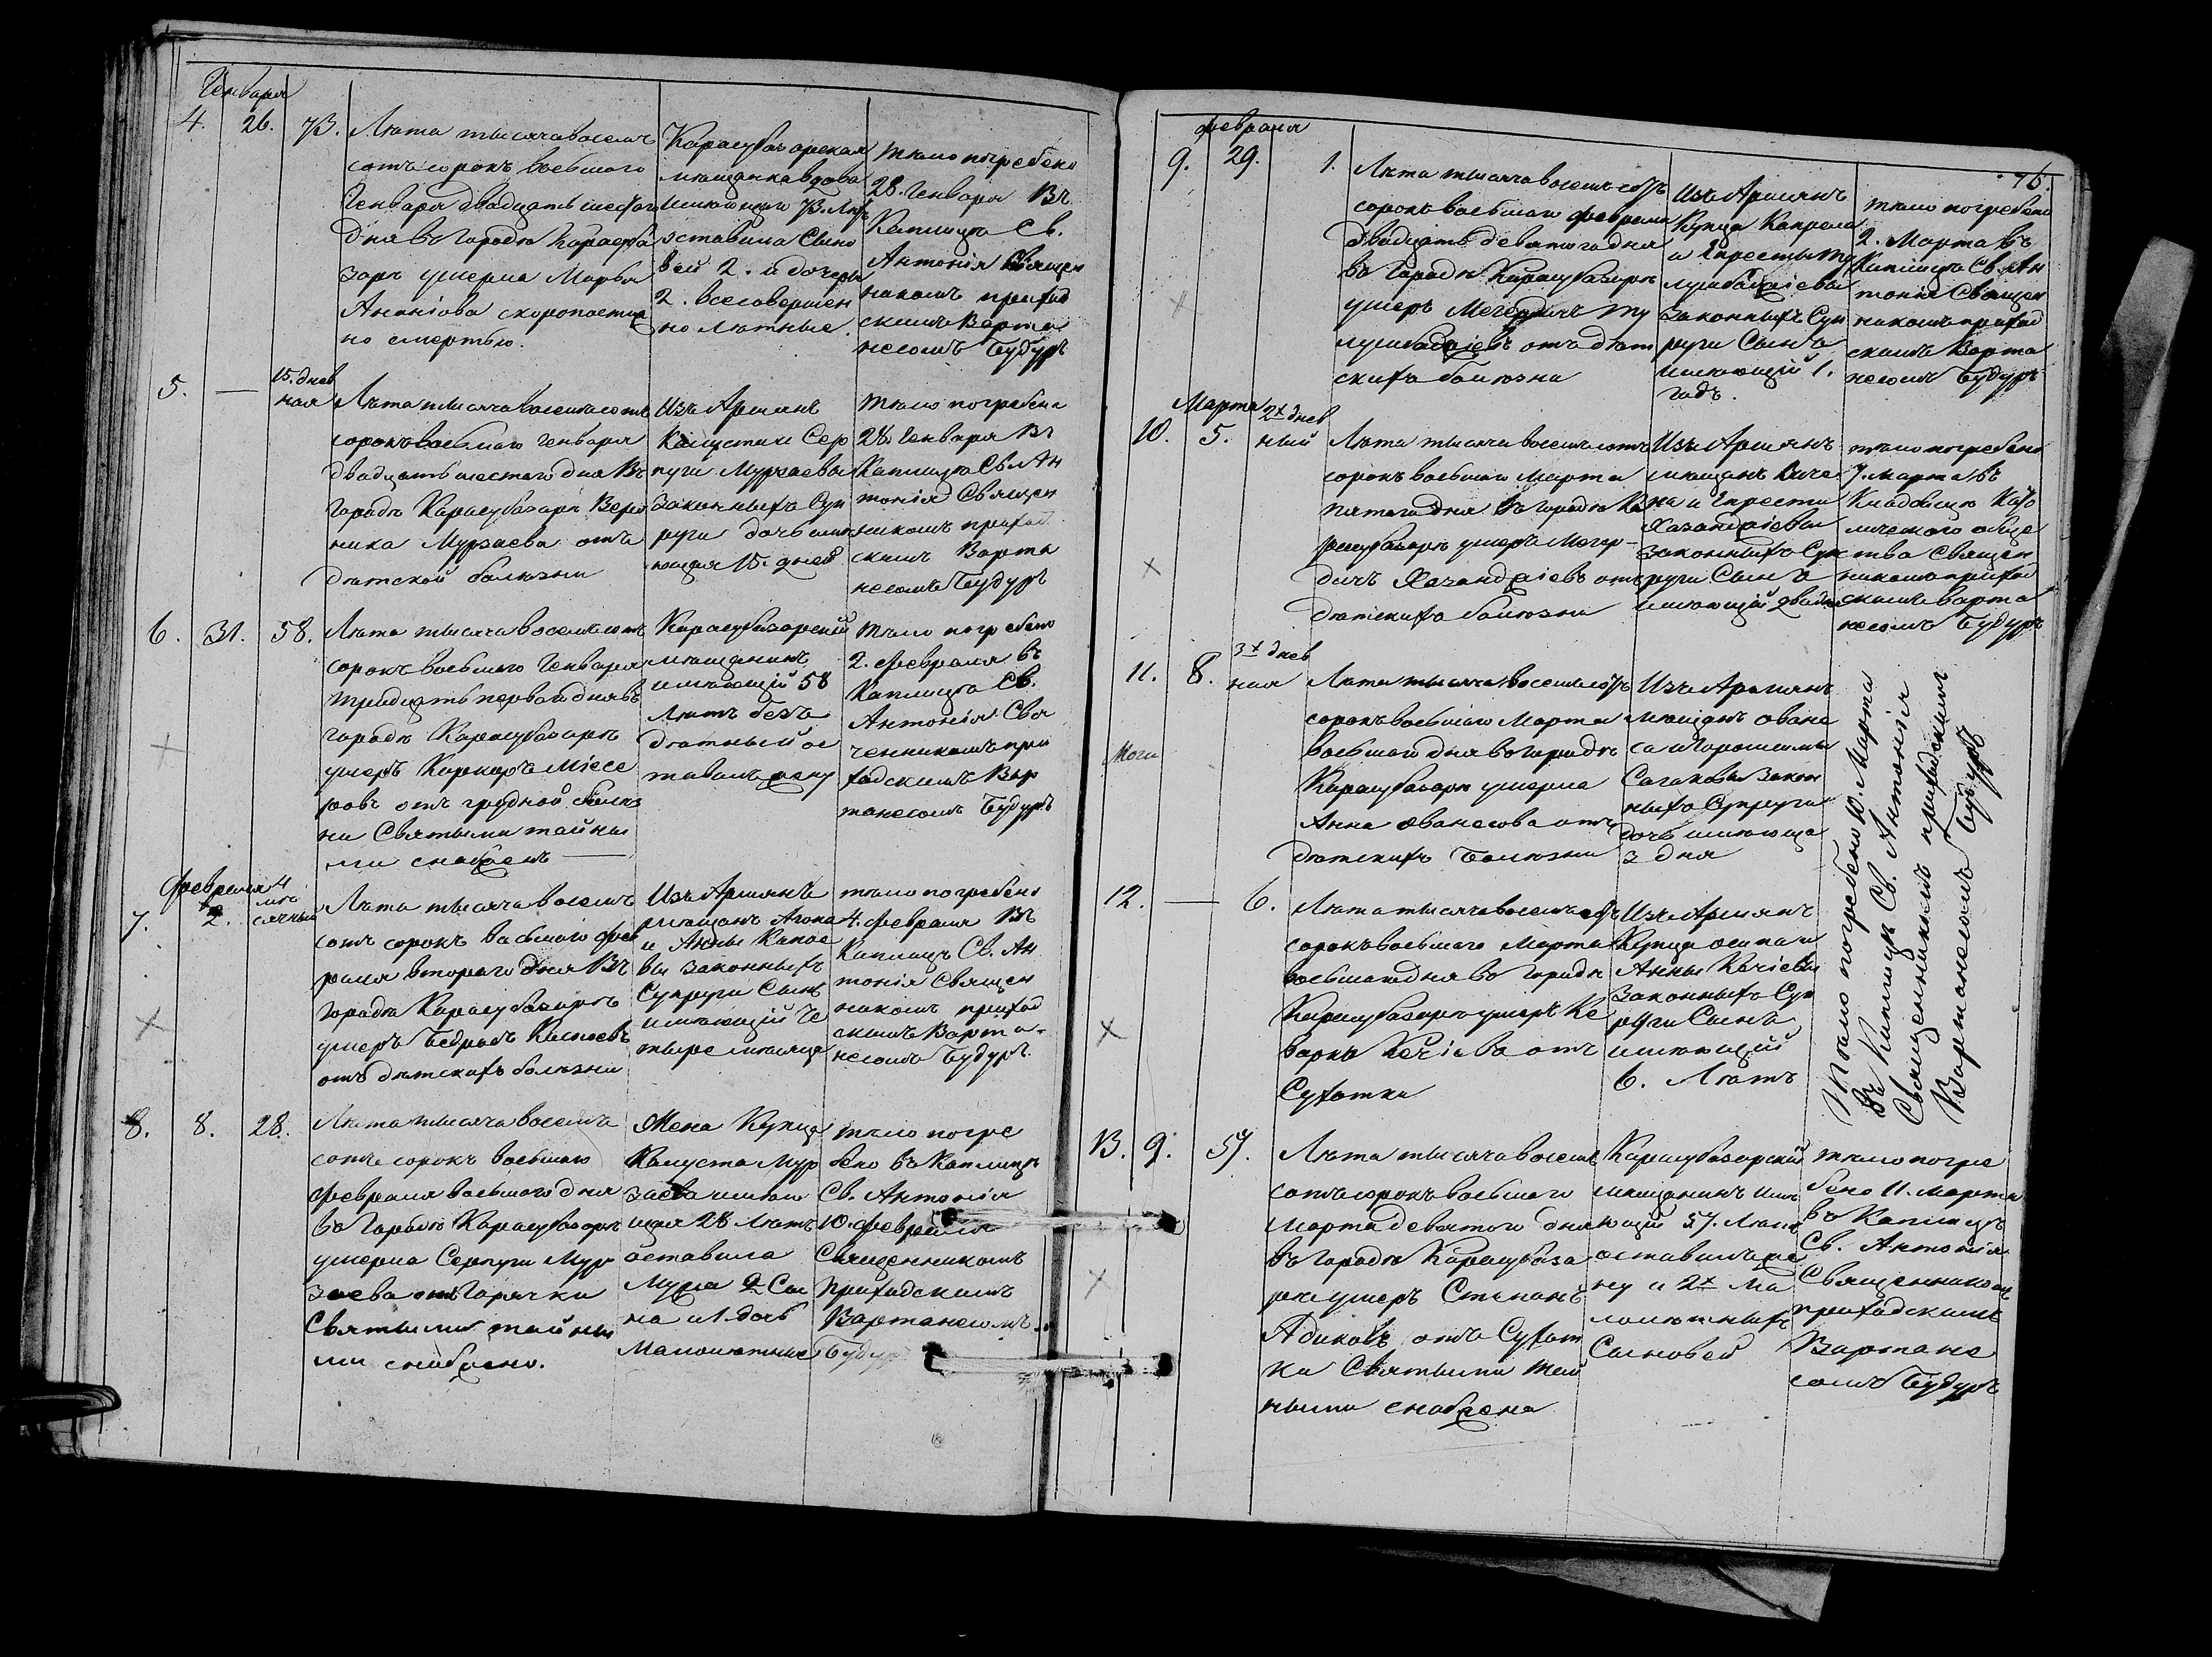 Генваря
4. 26. 73.
Лѣта тысяча восемь
сотъ сорокъ восьмого
Генваря двадцать шестаго
дня въ городѣ Карасуба
заръ умерла Марья
Ананіова скоропостиж
но смертью.
Карасубазарская
мѣщанка вдова
имѣющая 73. Лѣтъ
оставила Сыно
вей 2. и дочерей
2. всесовершен
но лѣтные.
тѣло погребено
28. Генваря Въ
Каплицѣ Св.
Антонія Священ
никомъ приход
скимъ Варта
несомъ Будуръ
5. — 15. днев
ная
Лѣта тысяча восемьсотъ
сорокъ восьмаго Генваря
двадцать шестаго дня Въ
городѣ Карасубазарѣ Веро
ника Мурзаева отъ
дѣтской болѣзни
Изъ Армянъ
Калустана Сер
пуги Мурзаевы
Законныхъ Суп
руги дочь имѣ
ющая 15. дней
Тѣло погребена
28. Генваря Въ
Каплицѣ Св. Ан
тонія Священ
никомъ приход
скимъ Варта
несомъ Будуръ
6. 31. 58.
Лѣта тысяча восемьсотъ
сорокъ восьмаго Генваря
тридцать первай дня въ
городѣ Карасубазарѣ
умеръ Каркаръ Місее
ровъ отъ грудной болѣз
ни Святыми тайны
ми снабженъ —
Карасубазарскій
мѣщанинъ
имѣющій 58
Лѣтъ безъ
дѣтный ос
тавилъ жену
тѣло погребено
2. Февраля въ
Каплицѣ Св.
Антонія Свя
щенникомъ при
ходскимъ Вар
танесомъ Будуръ
Февраля
7. 2. 4
мѣ
сячный
Лѣта тысяча восемь
сотъ сорокъ восьмого Фев
раля второго дня Въ
городѣ Карасубазарѣ
умеръ Бедросъ Капоевъ
отъ дѣтскихъ болѣзни
Изъ Армянъ
мѣщанъ Агопа
и Анны Капое
вы законныхъ
Супруги Сынъ
имѣющій Че
тыре мѣсяца
тѣло погребено
4. Февраля Въ
Каплицѣ Св. Ан
тонія Священ
никомъ приход
скимъ Варта-
несомъ Будуръ.
8. 8. 28.
Лѣта тысяча восемь
сотъ сорокъ восьмаго
Февраля восьмого дня
въ Городѣ Карасубазарѣ
умерла Серпуги Мур
заева отъ Горячки
Святыми тайны
ми снабжено.
Жена Купца
Калуста Мур
заева имѣю
щая 28 Лѣтъ
оставила
Мужа 2 Сы
на и 1. дочь
Малолѣтные
тѣло погре
бено въ Каплицѣ
Св. Антонія
10. Февраля
Священникомъ
Приходскимъ
Вартанесомъ
Будур
76.
Февраля
9. 29. 1.
Лѣта тысяча восемь сотъ
сорокъ восьмаго Февраля
двадцать девятого дня
въ Городѣ Карасубазарѣ
умеръ Мегердичъ Ту
лумбаджіевъ отъ дѣт
скихъ болѣзни
Изъ Армянъ
Купца Капрела
и Епресты Ту
лумбаджіевы
Законныхъ Суп
руги Сынъ
имѣющій 1.
годъ.
тѣло погребено
2. Марта въ
Каплицѣ Св. Ан
тонія Священ
никомъ приход
скимъ Варта
несомъ Будуръ
Марта
10. 5. 2х днев
ный
Лѣта тысяча восемь сотъ
сорокъ восьмаго Марта
пятаго дня въ городѣ Ка
расубазарѣ умеръ Мегер-
дичъ Хазанджіевъ отъ
дѣтскихъ болѣзни
Изъ Армянъ
мѣщанъ Киче
на и Епрести
Хазанджіевы
законныхъ Суп
руги Сынъ
имѣющій два дн
тѣло погребено
7. Марта въ
Кладбище Като
лическаго обще
тва Священ
никомъ приход
скимъ Варта
несомъ Будуръ
11. 8. 3х днев
ная
Лѣта тысяча восемьсотъ
сорокъ восьмаго Марта
восьмаго дня въ городѣ
Карасубазарѣ умерла
Анна Ованесова отъ
дѣтскихъ болѣзни
Изъ Армянъ
мѣщанъ Ована
са и Горошимы
Сагаковы Закон
ныхъ Супруги
дочь имѣюща
3 дня
Тѣло погребено 10. Марта
въ Каплицѣ Св. Антонія
Священникомъ приходскимъ
Вартанесомъ Будуръ
12. — 6.
Лѣта тысяча восемь сотъ
сорокъ восьмаго Марта
восьмаго дня въ городѣ
Карасубазарѣ умеръ Ке
воркъ Кечіева отъ
Сухотки
Изъ Армянъ
Купца Осипа и
Анны Кечіевы
Законныхъ Суп
руги Сынъ
имѣющій
6. Лѣтъ
13. 9. 57.
Лѣта тысяча восемь
сотъ сорокъ восьмаго
Марта девятого дня
въ городѣ Карасубаза
рѣ умеръ Степанъ
Адиковъ отъ Сухот
ки Святыми тай
ными снабжена
Карасубазарскій
мѣщанинъ имѣ
ющій 57. Лѣтъ
оставилъ же
ну и 2х ма
лолѣтныхъ
Сыновей
тѣло погре
бено 11. Марта
въ Каплицѣ
Св. Антонія
Священникомъ
приходскимъ
Вартане
сомъ Будуръ